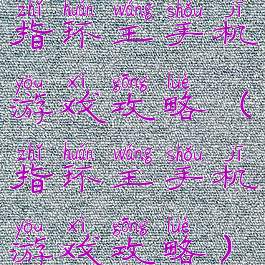 zhǐ huán wáng shǒu jī
指环王手机
yóu xì gōng lüè
游戏攻略（
zhǐ huán wáng shǒu jī
指环王手机
yóu xì gōng lüè
游戏攻略）